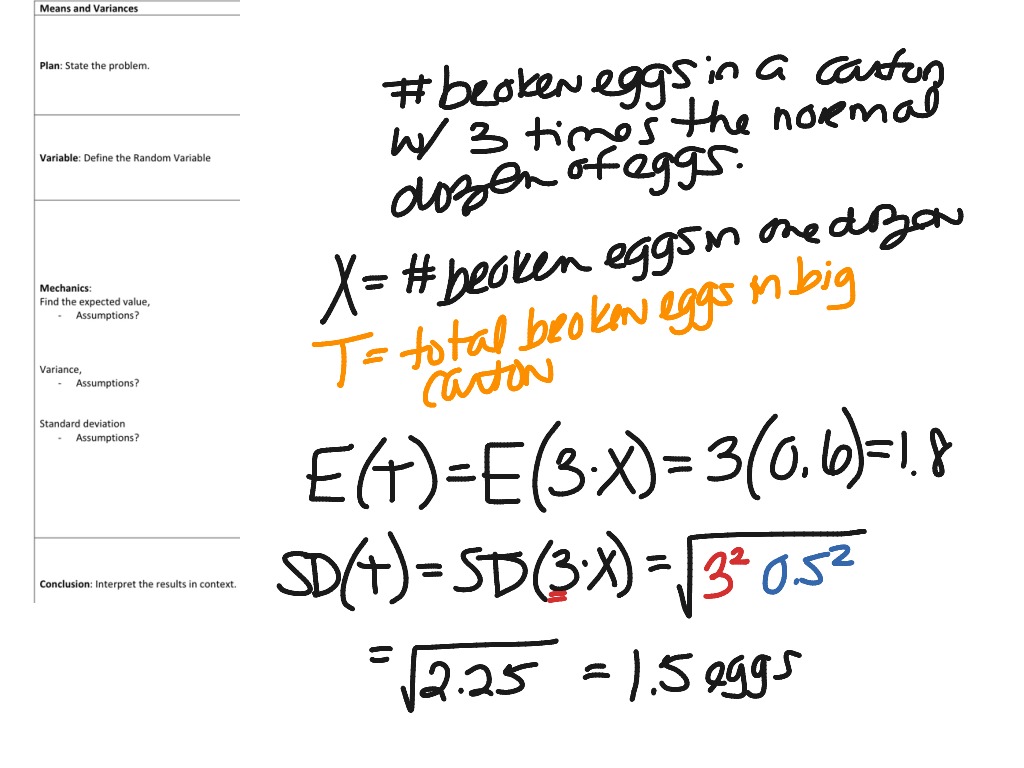 Means and Variances
Plan: State the problem.
Variable: Define the Random Variable
Mechanics:
Find the expected value,
- Assumptions?
Variance,
- Assumptions?
Standard deviation
- Assumptions?
Conclusion: Interpret the results in context.
# broken eggs in a carton
w/ 3 times the normal
dozen of eggs.
X = # broken eggs in one dozen
T = total broken eggs in big
carton
E(T) = E(3·X) = 3(0.6) = 1.8
SD(T) = SD(3·X) = √3² 0.5²
= √2.25 = 1.5 eggs